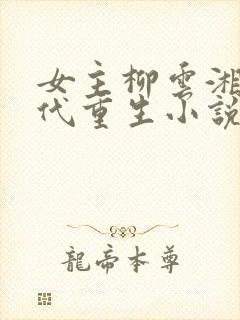 女主柳雲湘
代重生小說
龍帝本尊